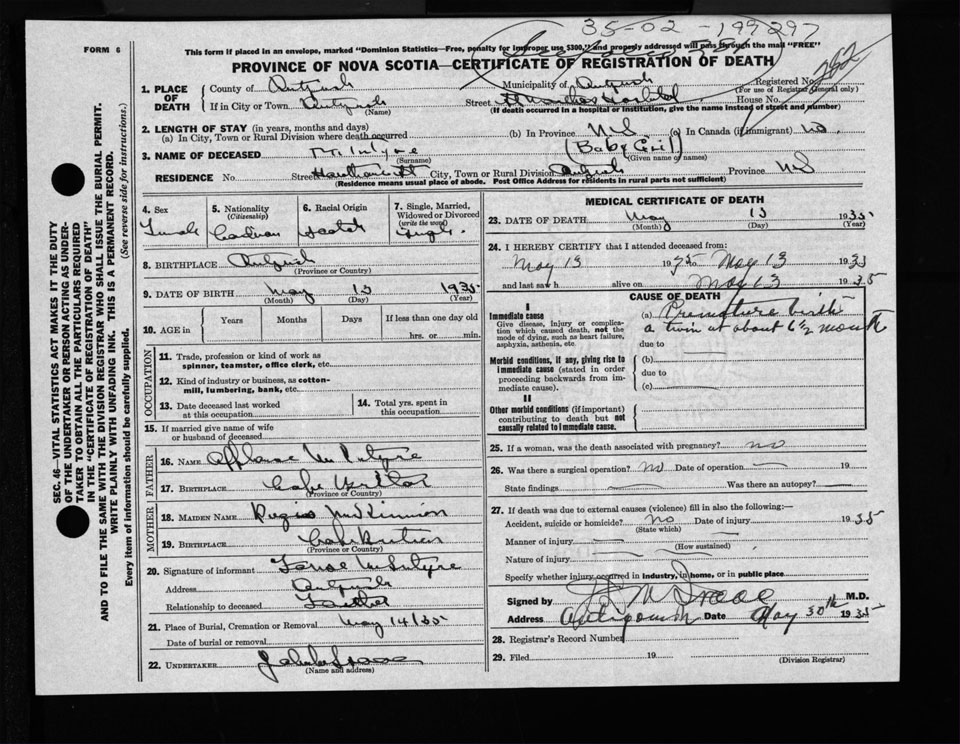 35-02-199297
FORM 6
This form if placed in an envelope, marked "Dominion Statistics—Free, penalty for improper use $300," and properly addressed will pass through the mail "FREE"
PROVINCE OF NOVA SCOTIA—CERTIFICATE OF REGISTRATION OF DEATH
1. PLACE OF DEATH
County of Antigonish Municipality of Antigonish Registered No.
(For use of Registrar General only)
If in City or Town Antigonish Street St Marthas Hospital House No.
(Name) (If death occurred in a hospital or institution, give the name instead of street and number)
2. LENGTH OF STAY (in years, months and days)
(a) In City, Town or Rural Division where death occurred (b) In Province N.S. (c) In Canada (if immigrant) no.
3. NAME OF DECEASED McIntyre (Baby Girl)
(Surname) (Given name or names)
RESIDENCE No. Street Hawthorne St City, Town or Rural Division Antigonish Province N.S
(Residence means usual place of abode. Post Office Address for residents in rural parts not sufficient)
4. Sex
Female
5. Nationality
(Citizenship)
Canadian
6. Racial Origin
Scotch
7. Single, Married, Widowed or Divorced
(write the word)
Single.
8. BIRTHPLACE Antigonish
(Province or Country)
9. DATE OF BIRTH May 13 1935
(Month) (Day) (Year)
10. AGE in
Years Months Days If less than one day old
hrs. or min.
OCCUPATION
11. Trade, profession or kind of work as
spinner, teamster, office clerk, etc.
12. Kind of industry or business, as cotton-
mill, lumbering, bank, etc.
13. Date deceased last worked
at this occupation
14. Total yrs. spent in
this occupation
15. If married give name of wife
or husband of deceased
FATHER
16. Name Alphonse McIntyre
17. Birthplace Cape Breton
(Province or Country)
MOTHER
18. Maiden Name McKinnon
19. Birthplace Cape Breton
(Province or Country)
20. Signature of informant McIntyre
Address Antigonish
Relationship to deceased Father
21. Place of Burial, Cremation or Removal May 14/35
Date of burial or removal
22. UNDERTAKER
(Name and address)
MEDICAL CERTIFICATE OF DEATH
23. DATE OF DEATH May 13 1935
(Month) (Day) (Year)
24. I HEREBY CERTIFY that I attended deceased from:
May 13 1935 to May 13 1935
and last saw h alive on May 13 1935
CAUSE OF DEATH
I
Immediate cause
Give disease, injury or complica-
tion which caused death, not the
mode of dying, such as heart failure,
asphyxia, asthenia, etc.
(a) Premature birth
a twin at about 6½ month
due to
Morbid conditions, if any, giving rise to
immediate cause (stated in order
proceeding backwards from im-
mediate cause).
(b)
due to
(c)
II
Other morbid conditions (if important)
contributing to death but not
causally related to immediate cause.
25. If a woman, was the death associated with pregnancy? no
26. Was there a surgical operation? no Date of operation 19
State findings Was there an autopsy?
27. If death was due to external causes (violence) fill in also the following:—
Accident, suicide or homicide? no Date of injury 1935
(State which)
Manner of injury
(How sustained)
Nature of injury
Specify whether injury occurred in industry, in home, or in public place
Signed by M.D.
Address Antigonish Date May 30th 1935
28. Registrar's Record Number
29. Filed 19
(Division Registrar)
SEC. 46—VITAL STATISTICS ACT MAKES IT THE DUTY
OF THE UNDERTAKER OR PERSON ACTING AS UNDER-
TAKER TO OBTAIN ALL THE PARTICULARS REQUIRED
IN THE "CERTIFICATE OF REGISTRATION OF DEATH"
AND TO FILE THE SAME WITH THE DIVISION REGISTRAR WHO SHALL ISSUE THE BURIAL PERMIT.
WRITE PLAINLY WITH UNFADING INK. THIS IS A PERMANENT RECORD.
Every item of information should be carefully supplied. (See reverse side for instructions.)